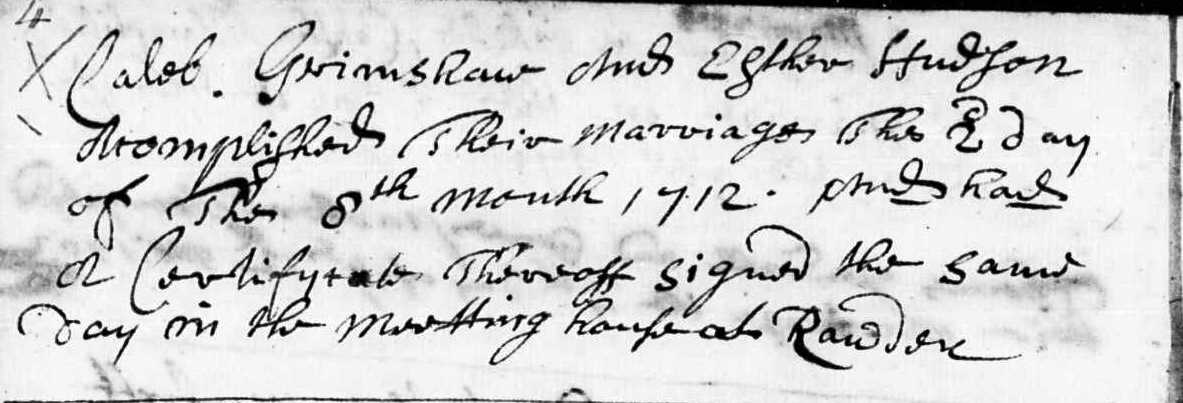 4
Caleb. Grimshaw And Esther Hudson
Acomplished Their marriage The 2 day
of The 8th month 1712. And had
A Certifycate Thereoff signed the same
day in the meetting house at Rawden